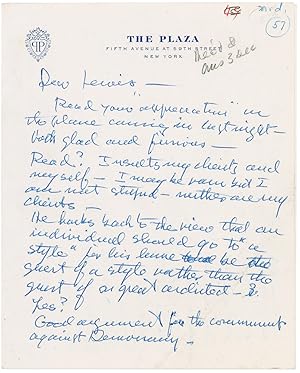 rec'd.
57
THE PLAZA
FIFTH AVENUE AT 59TH STREET
NEW YORK
ans 3 Dec
Dear Lewis –
Read your "appreciation" in
the plane coming in last night –
both glad and furious –
Read? I insults my clients and
myself – I may be vain but I
am not stupid – neither are my
clients –
He harks back to the view that an
individual should go to "a
style" for his home and be the
guest of a style rather than the
guest of a great architect – ?
Yes?
Good argument for the communist
against Democracy –